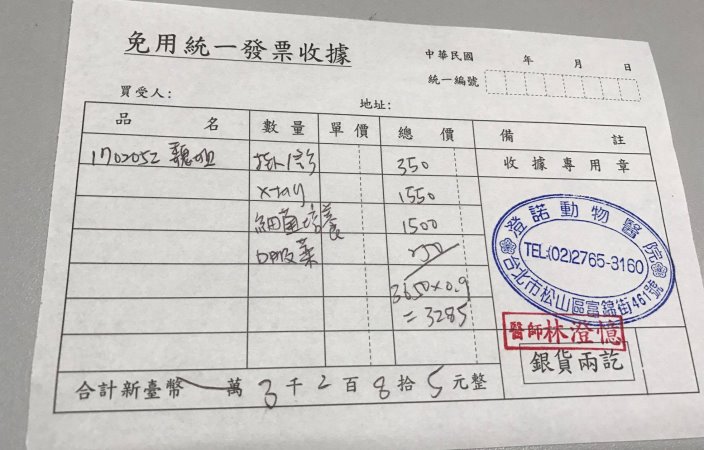 免用統一發票收據
中華民國 年 月 日
統一編號
買受人: 地址:
品 名 數量 單價 總 價 備 註
1702052 350 收據專用章
x-ray 1550
細菌培養 1500
口服藥 250
3650 x 0.9
= 3285
澄諾動物醫院
TEL:(02)2765-3160
台北市松山區富錦街461號
醫師林澄憶
銀貨兩訖
合計新臺幣 萬 3 千 2 百 8 拾 5 元整